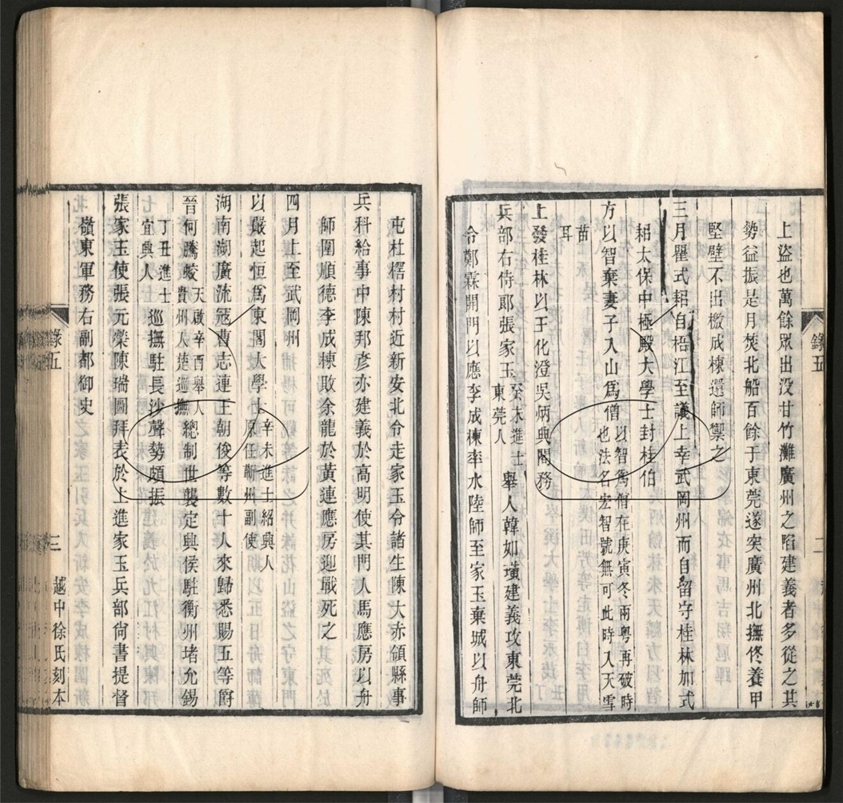 上盜也萬餘眾出没甘竹灘廣州之陷建義者多從之其
勢益振是月焚北船百餘于東莞遂突廣州北撫佟養甲
堅壁不出檄成棟還師禦之
三月瞿式耜自梧江至議上幸武岡州而自留守桂林加式
耜太保中極殿大學士封桂伯
方以智棄妻子入山為僧以智為僧在庚寅冬兩粵再破時
也法名宏智號無可此時入天雪
苗
耳
上發桂林以王化澄吳炳典閣務
兵部右侍郎張家玉癸未進士
東莞人
舉人韓如璜建義攻東莞北
令鄭霖開門以應李成棟率水陸師至家玉棄城以舟師
錄五
二
屯杜榕村村近新安北令走家玉令諸生陳大赤領縣事
兵科給事中陳邦彥亦建義於高明使其門人馬應房以舟
師圍順德李成棟敗余龍於黃連應房迎戰死之
四月上至武岡州
以嚴起恒為東閣大學士辛未進士紹興人
原任蘄州副使
湖南湖廣流寇曹志連王朝俊等數十人來歸悉賜五等爵
晉何騰蛟天啟辛酉舉人
貴州人楚巡撫
總制世襲定興侯駐衡州堵允錫
丁丑進士
宜興人
巡撫駐長沙聲勢頗振
張家玉使張元瑩陳瑞圖拜表於上進家玉兵部尚書提督
嶺東軍務右副都御史
錄五
三
越中徐氏刻本